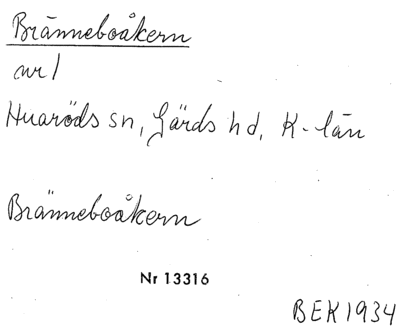 Bränneboåkern
nr 1
Huaröds sn, Gärds hd, K-län
Bränneboåkern
Nr 13316
BEK 1934